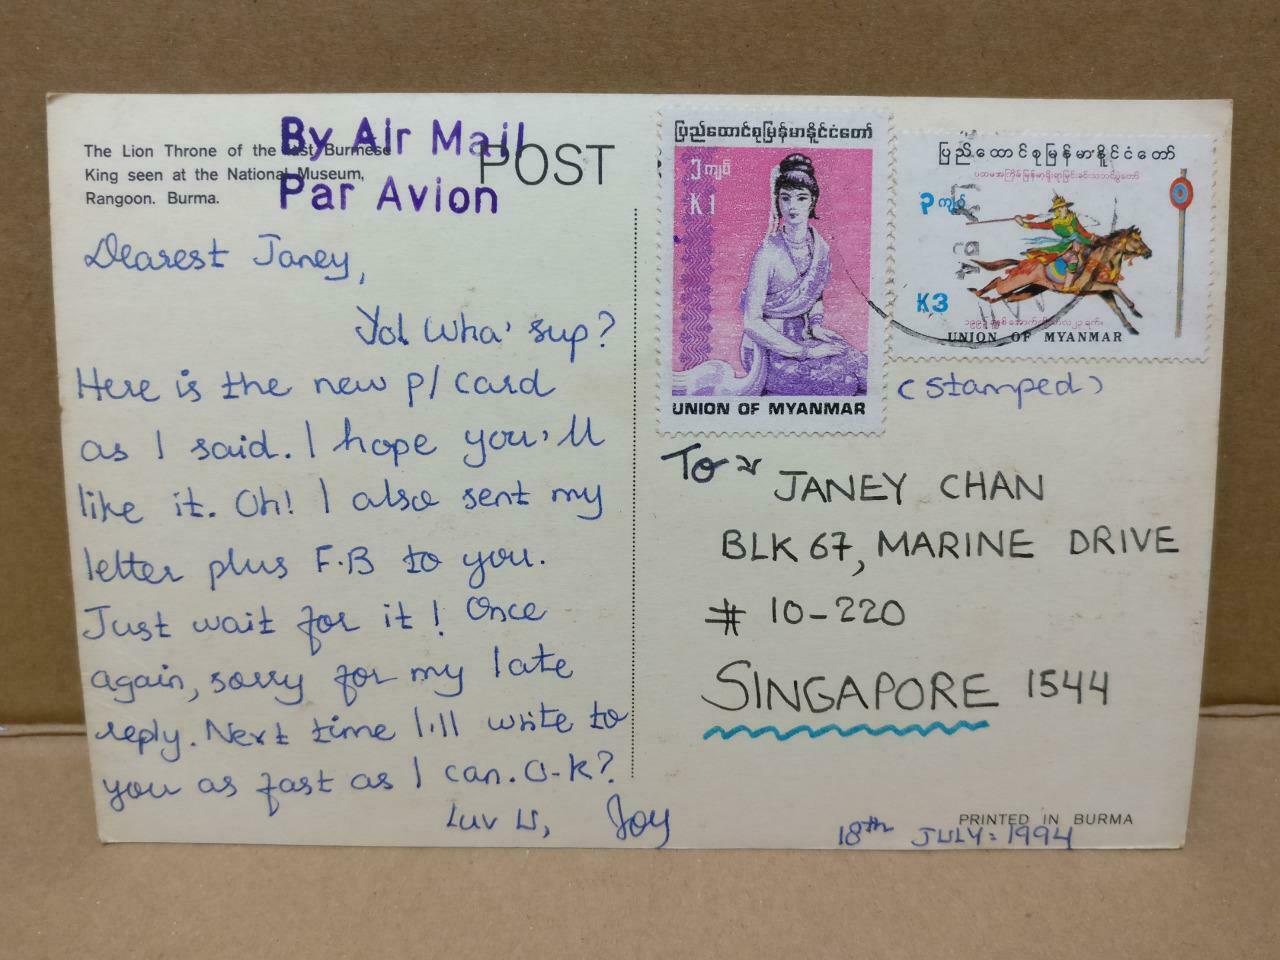 The Lion Throne of the last Burmese
King seen at the National Museum,
Rangoon. Burma.
By Air Mail
Par Avion
POST
Dearest Janey,
Yo! Wha' sup?
Here is the new p/card
as I said. I hope you'll
like it. Oh! I also sent my
letter plus F.B to you.
Just wait for it! Once
again, sorry for my late
reply. Next time I'll write to
you as fast as I can. O-K?
Luv U, Joy
ပြည်ထောင်စုမြန်မာနိုင်ငံတော်
၁ကျပ်
K1
UNION OF MYANMAR
ပြည်ထောင်စုမြန်မာနိုင်ငံတော်
၃ကျပ်
K3
UNION OF MYANMAR
(stamped)
To
JANEY CHAN
BLK 67, MARINE DRIVE
# 10-220
SINGAPORE 1544
PRINTED IN BURMA
18th JULY: 1994